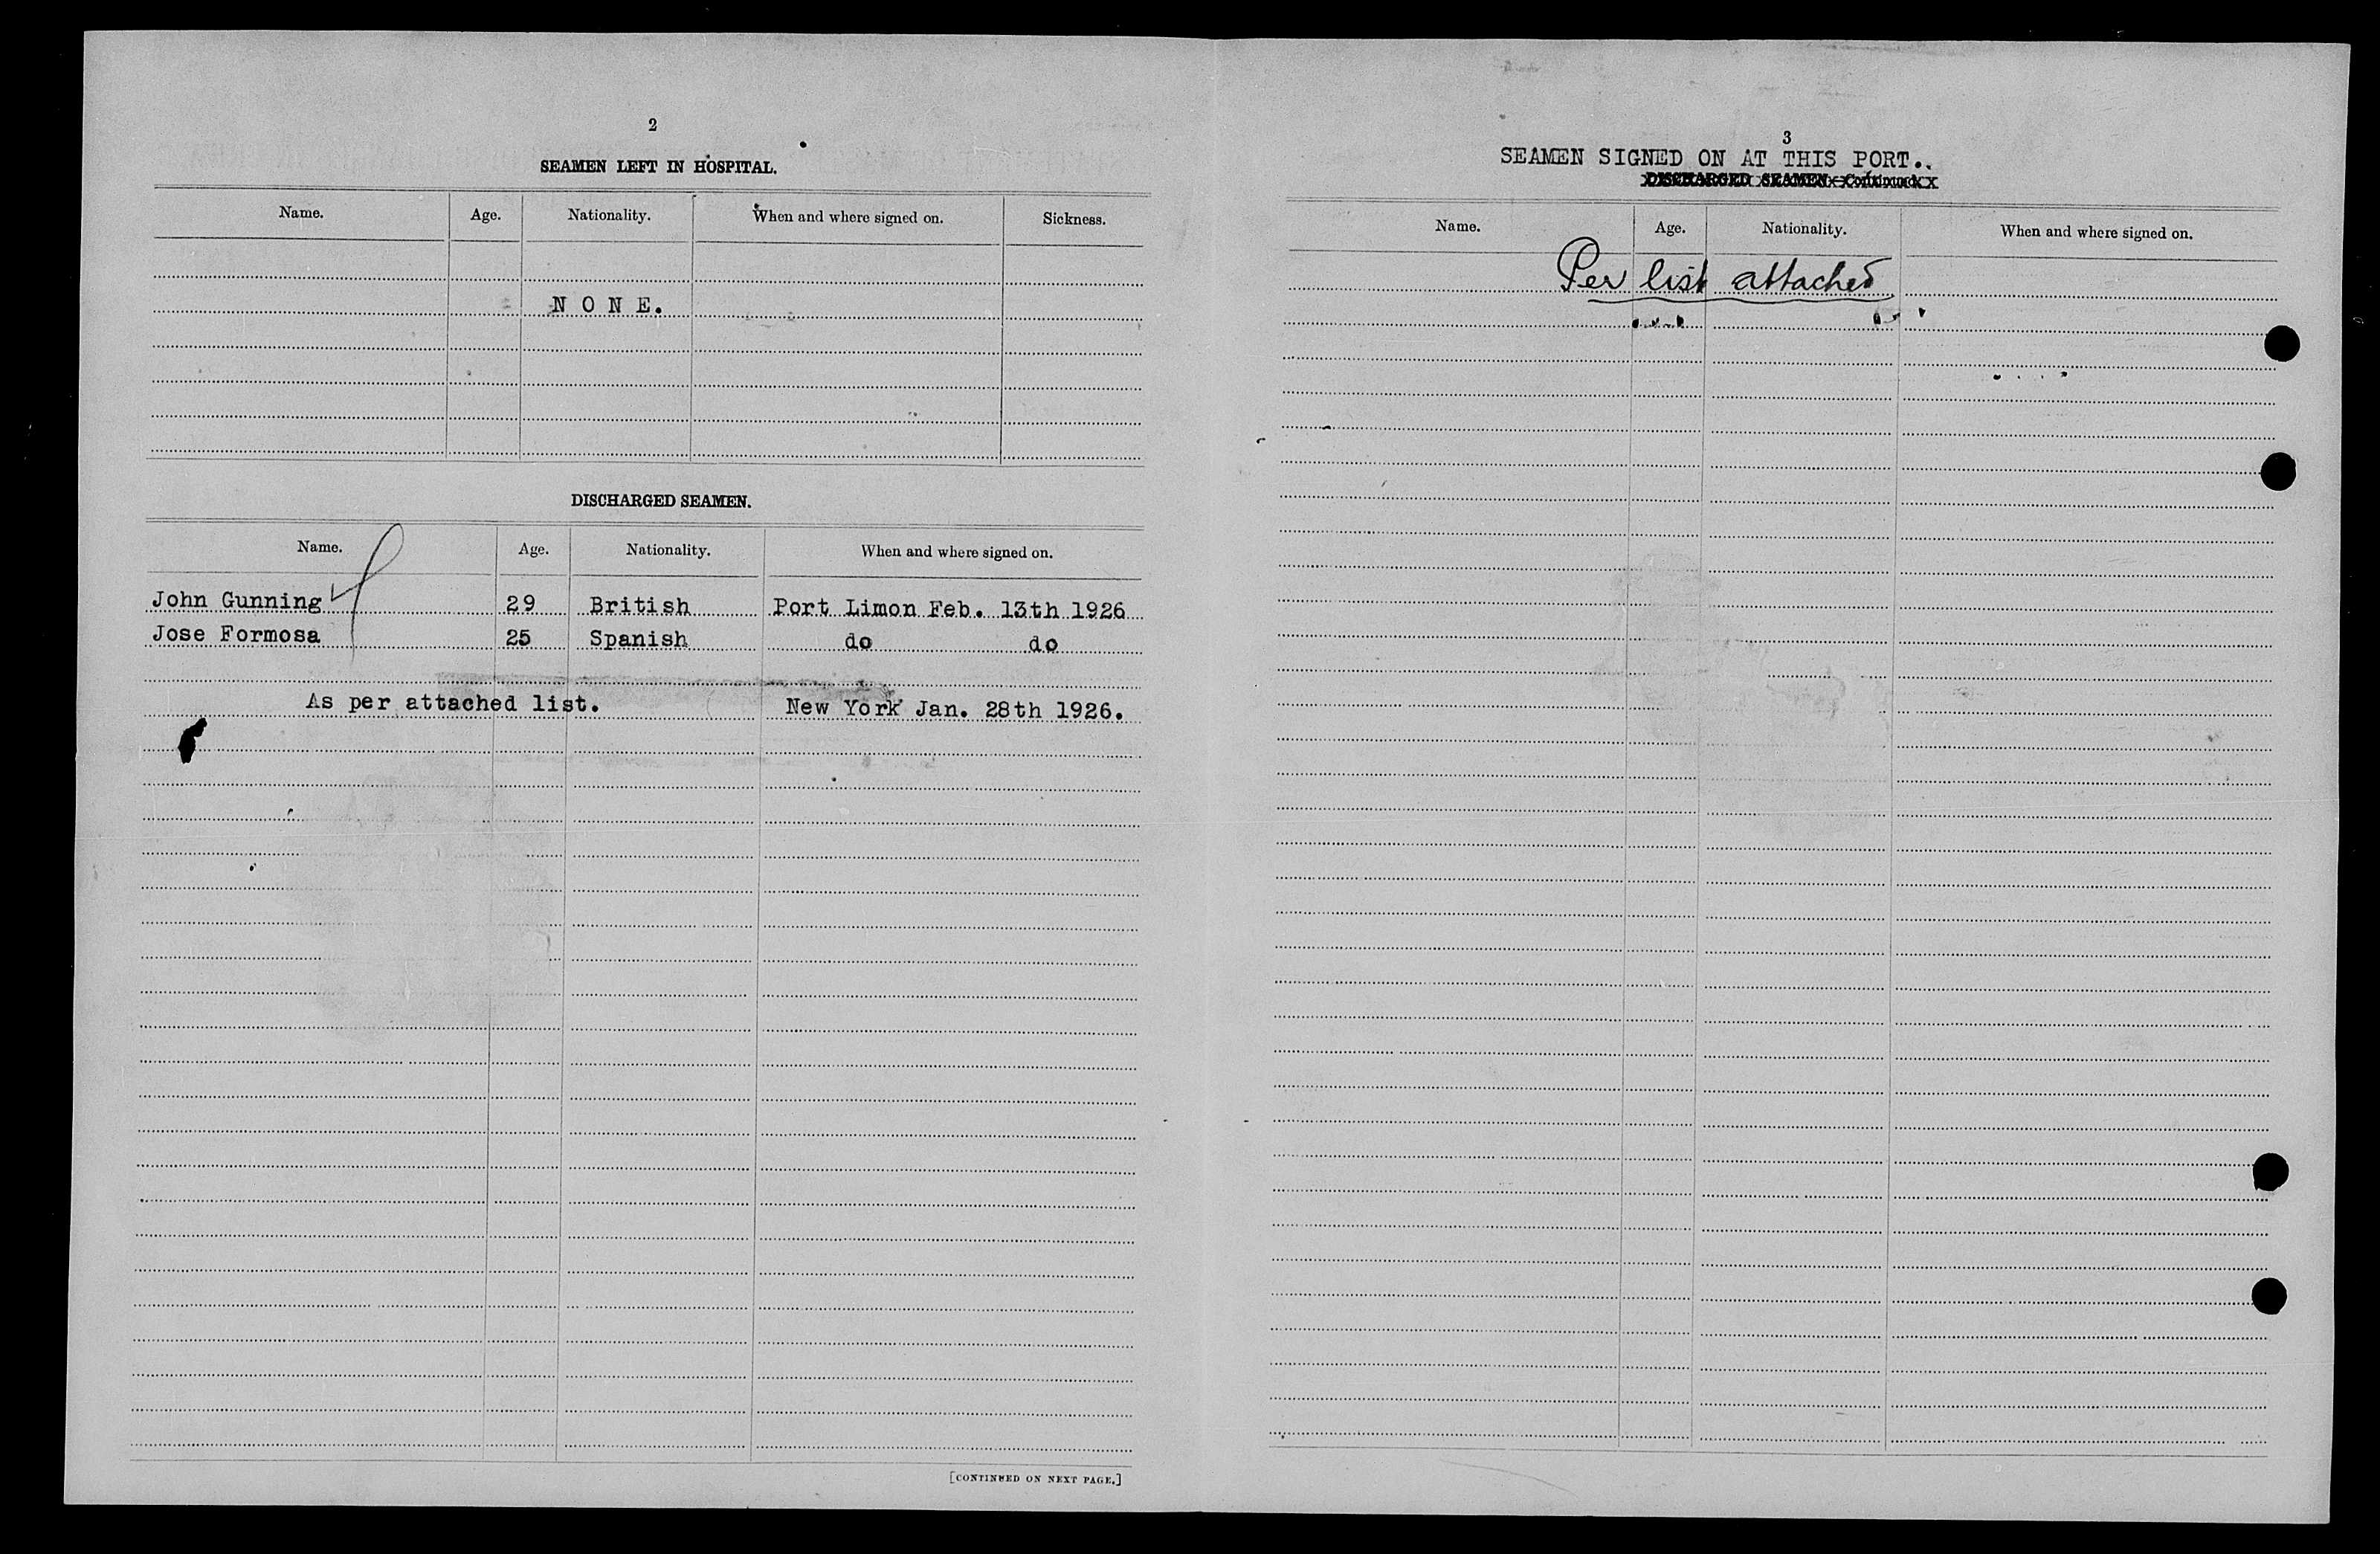 2
SEAMEN LEFT IN HOSPITAL.
Name. Age. Nationality. When and where signed on. Sickness.
N O N E.
DISCHARGED SEAMEN.
Name. Age. Nationality. When and where signed on.
John Gunning 29 British Port Limon Feb. 13th 1926
Jose Formosa 25 Spanish do do
As per attached list. New York Jan. 28th 1926.
[CONTINUED ON NEXT PAGE.]
3
SEAMEN SIGNED ON AT THIS PORT..
DISCHARGED SEAMEN—Continued.
Name. Age. Nationality. When and where signed on.
Per list attached